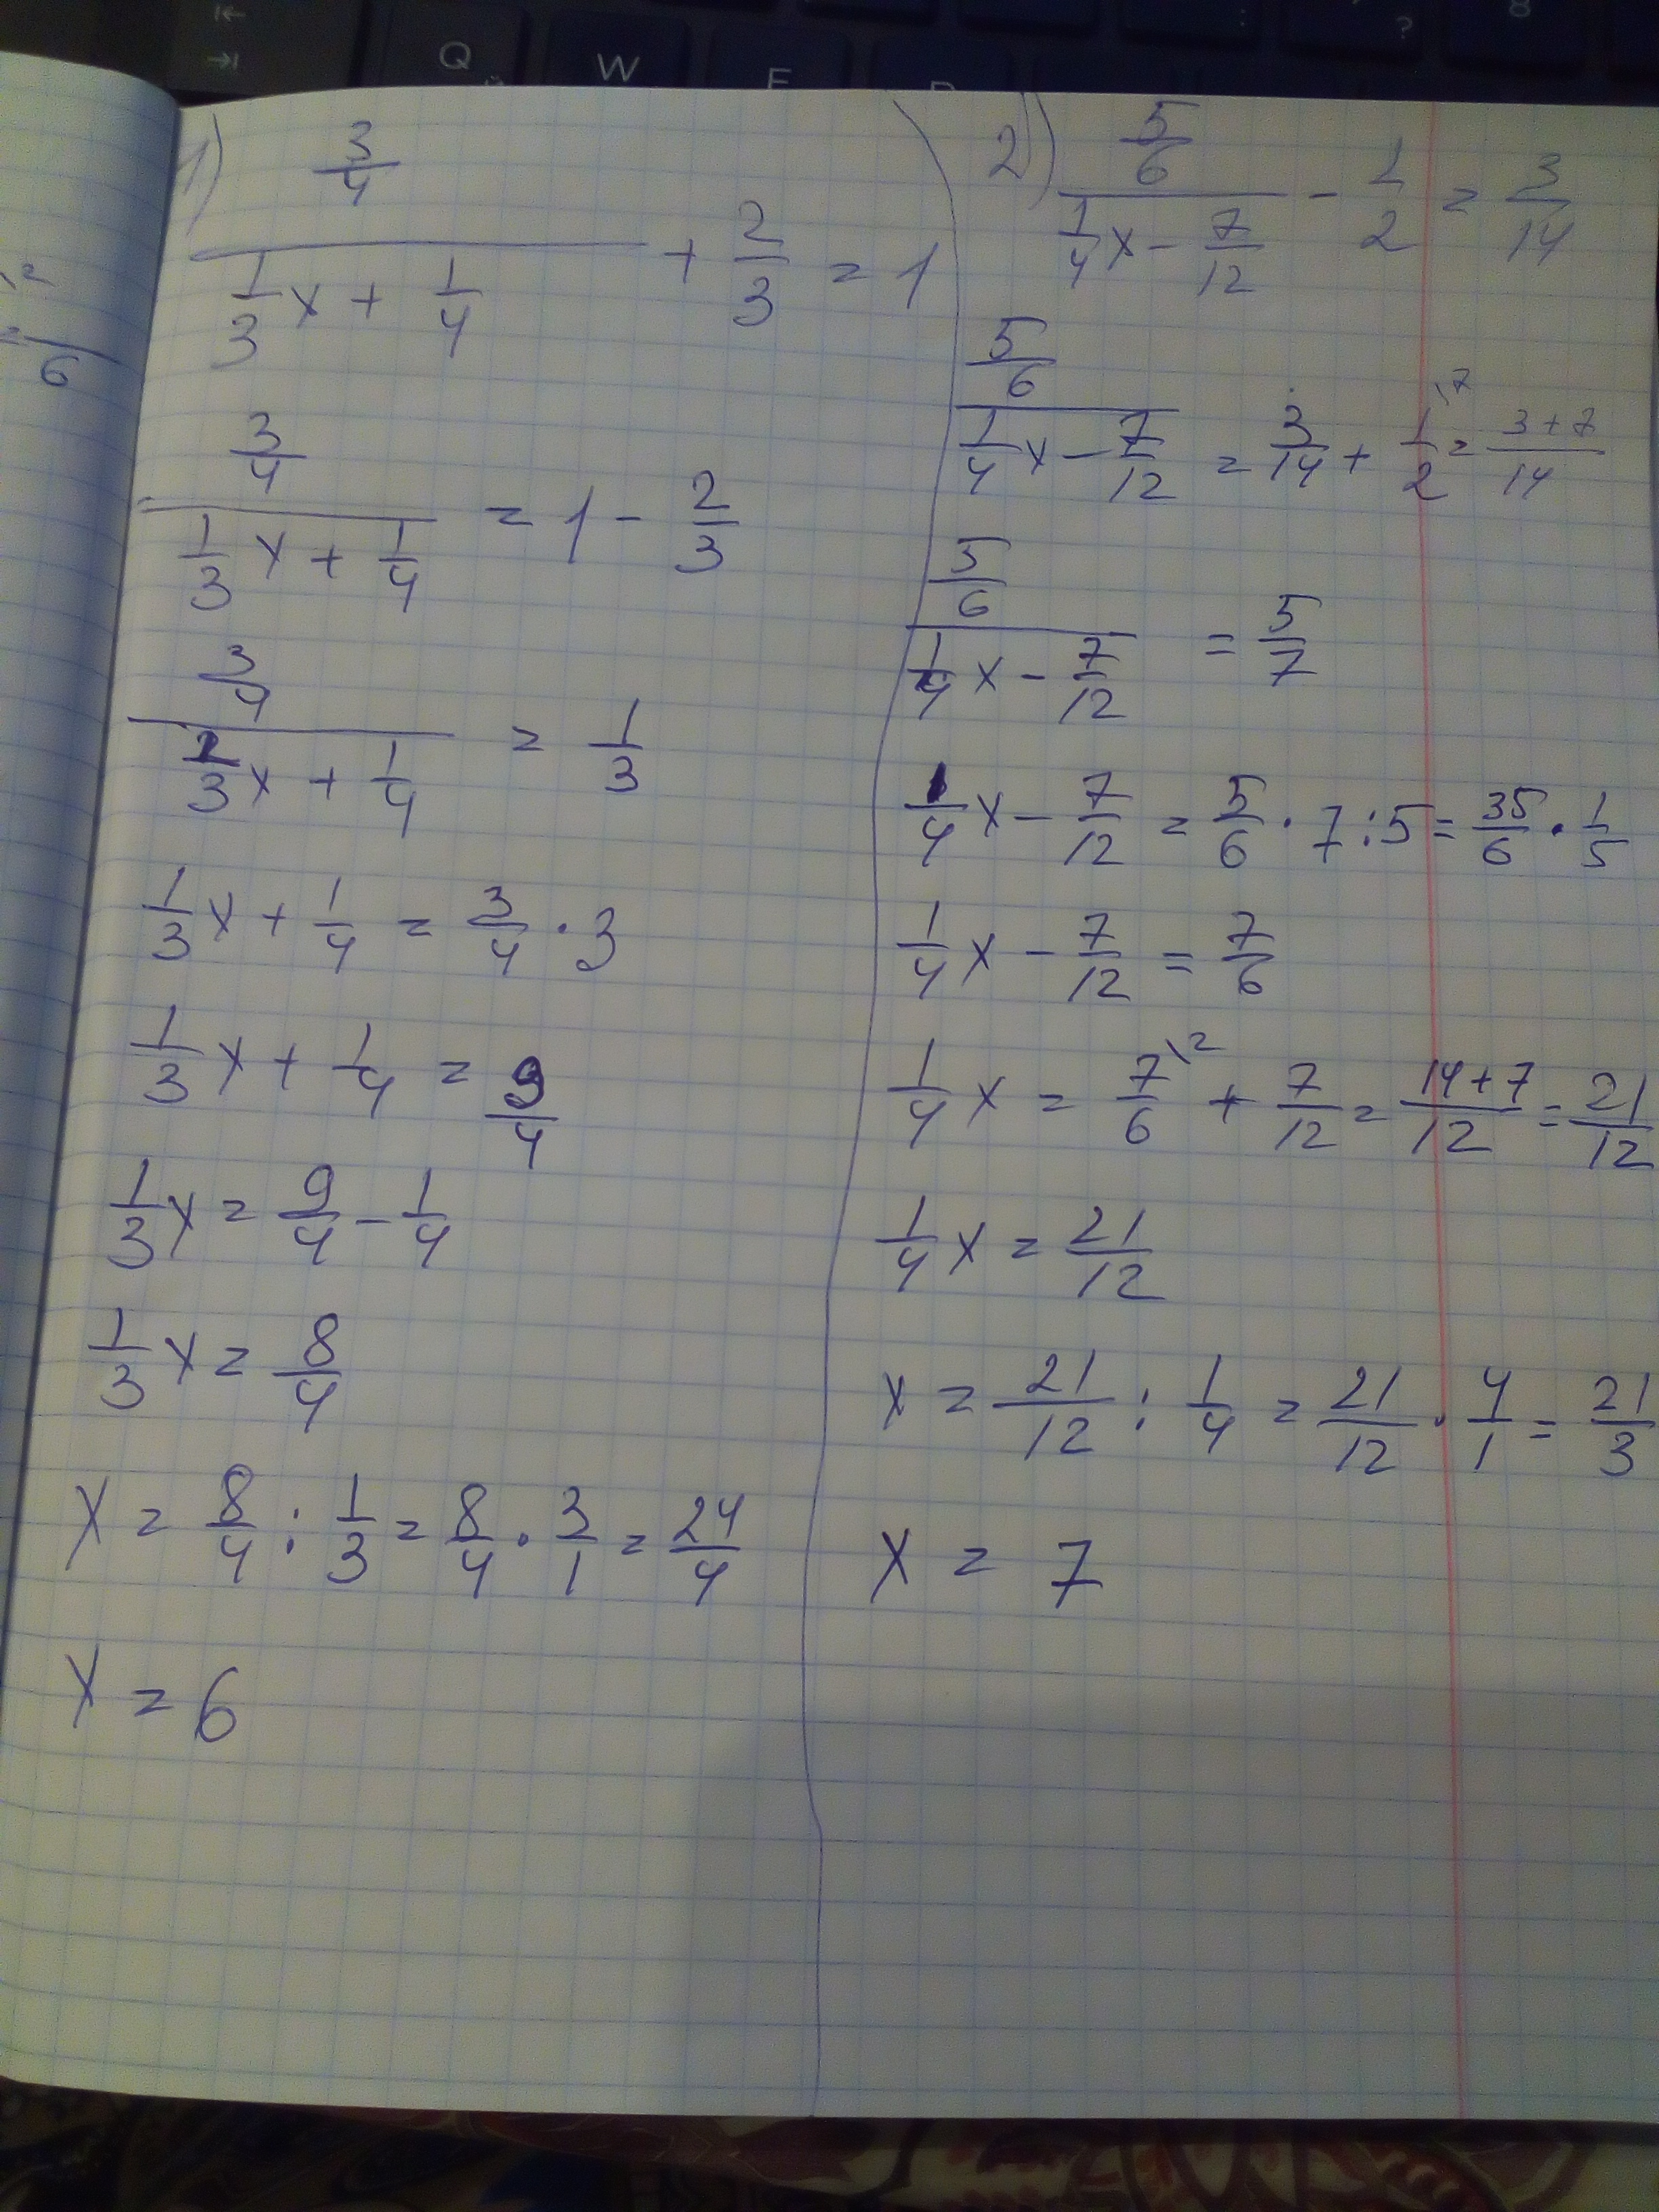 Q W E
? 8
\2
= /6
1) (3/4)/(1/3 x + 1/4) + 2/3 = 1
(3/4)/(1/3 x + 1/4) = 1 - 2/3
(3/4)/(1/3 x + 1/4) = 1/3
1/3 x + 1/4 = 3/4 · 3
1/3 x + 1/4 = 9/4
1/3 x = 9/4 - 1/4
1/3 x = 8/4
x = 8/4 : 1/3 = 8/4 · 3/1 = 24/4
x = 6
2) (5/6)/(1/4 x - 7/12) - 1/2 = 3/14
(5/6)/(1/4 x - 7/12) = 3/14 + 1/2 \7 = (3+7)/14
(5/6)/(1/4 x - 7/12) = 5/7
1/4 x - 7/12 = 5/6 · 7 : 5 = 35/6 · 1/5
1/4 x - 7/12 = 7/6
1/4 x = 7/6 \2 + 7/12 = (14+7)/12 = 21/12
1/4 x = 21/12
x = 21/12 : 1/4 = 21/12 · 4/1 = 21/3
x = 7